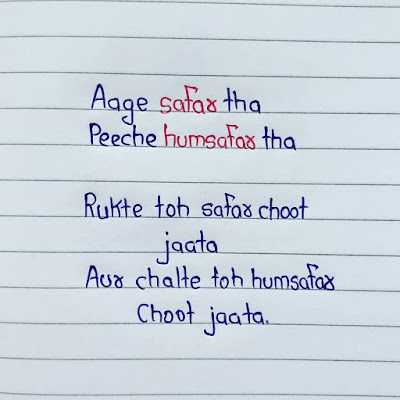 Aage safar tha
Peeche humsafar tha
Rukte toh safar choot
jaata
Aur chalte toh humsafar
Choot jaata.